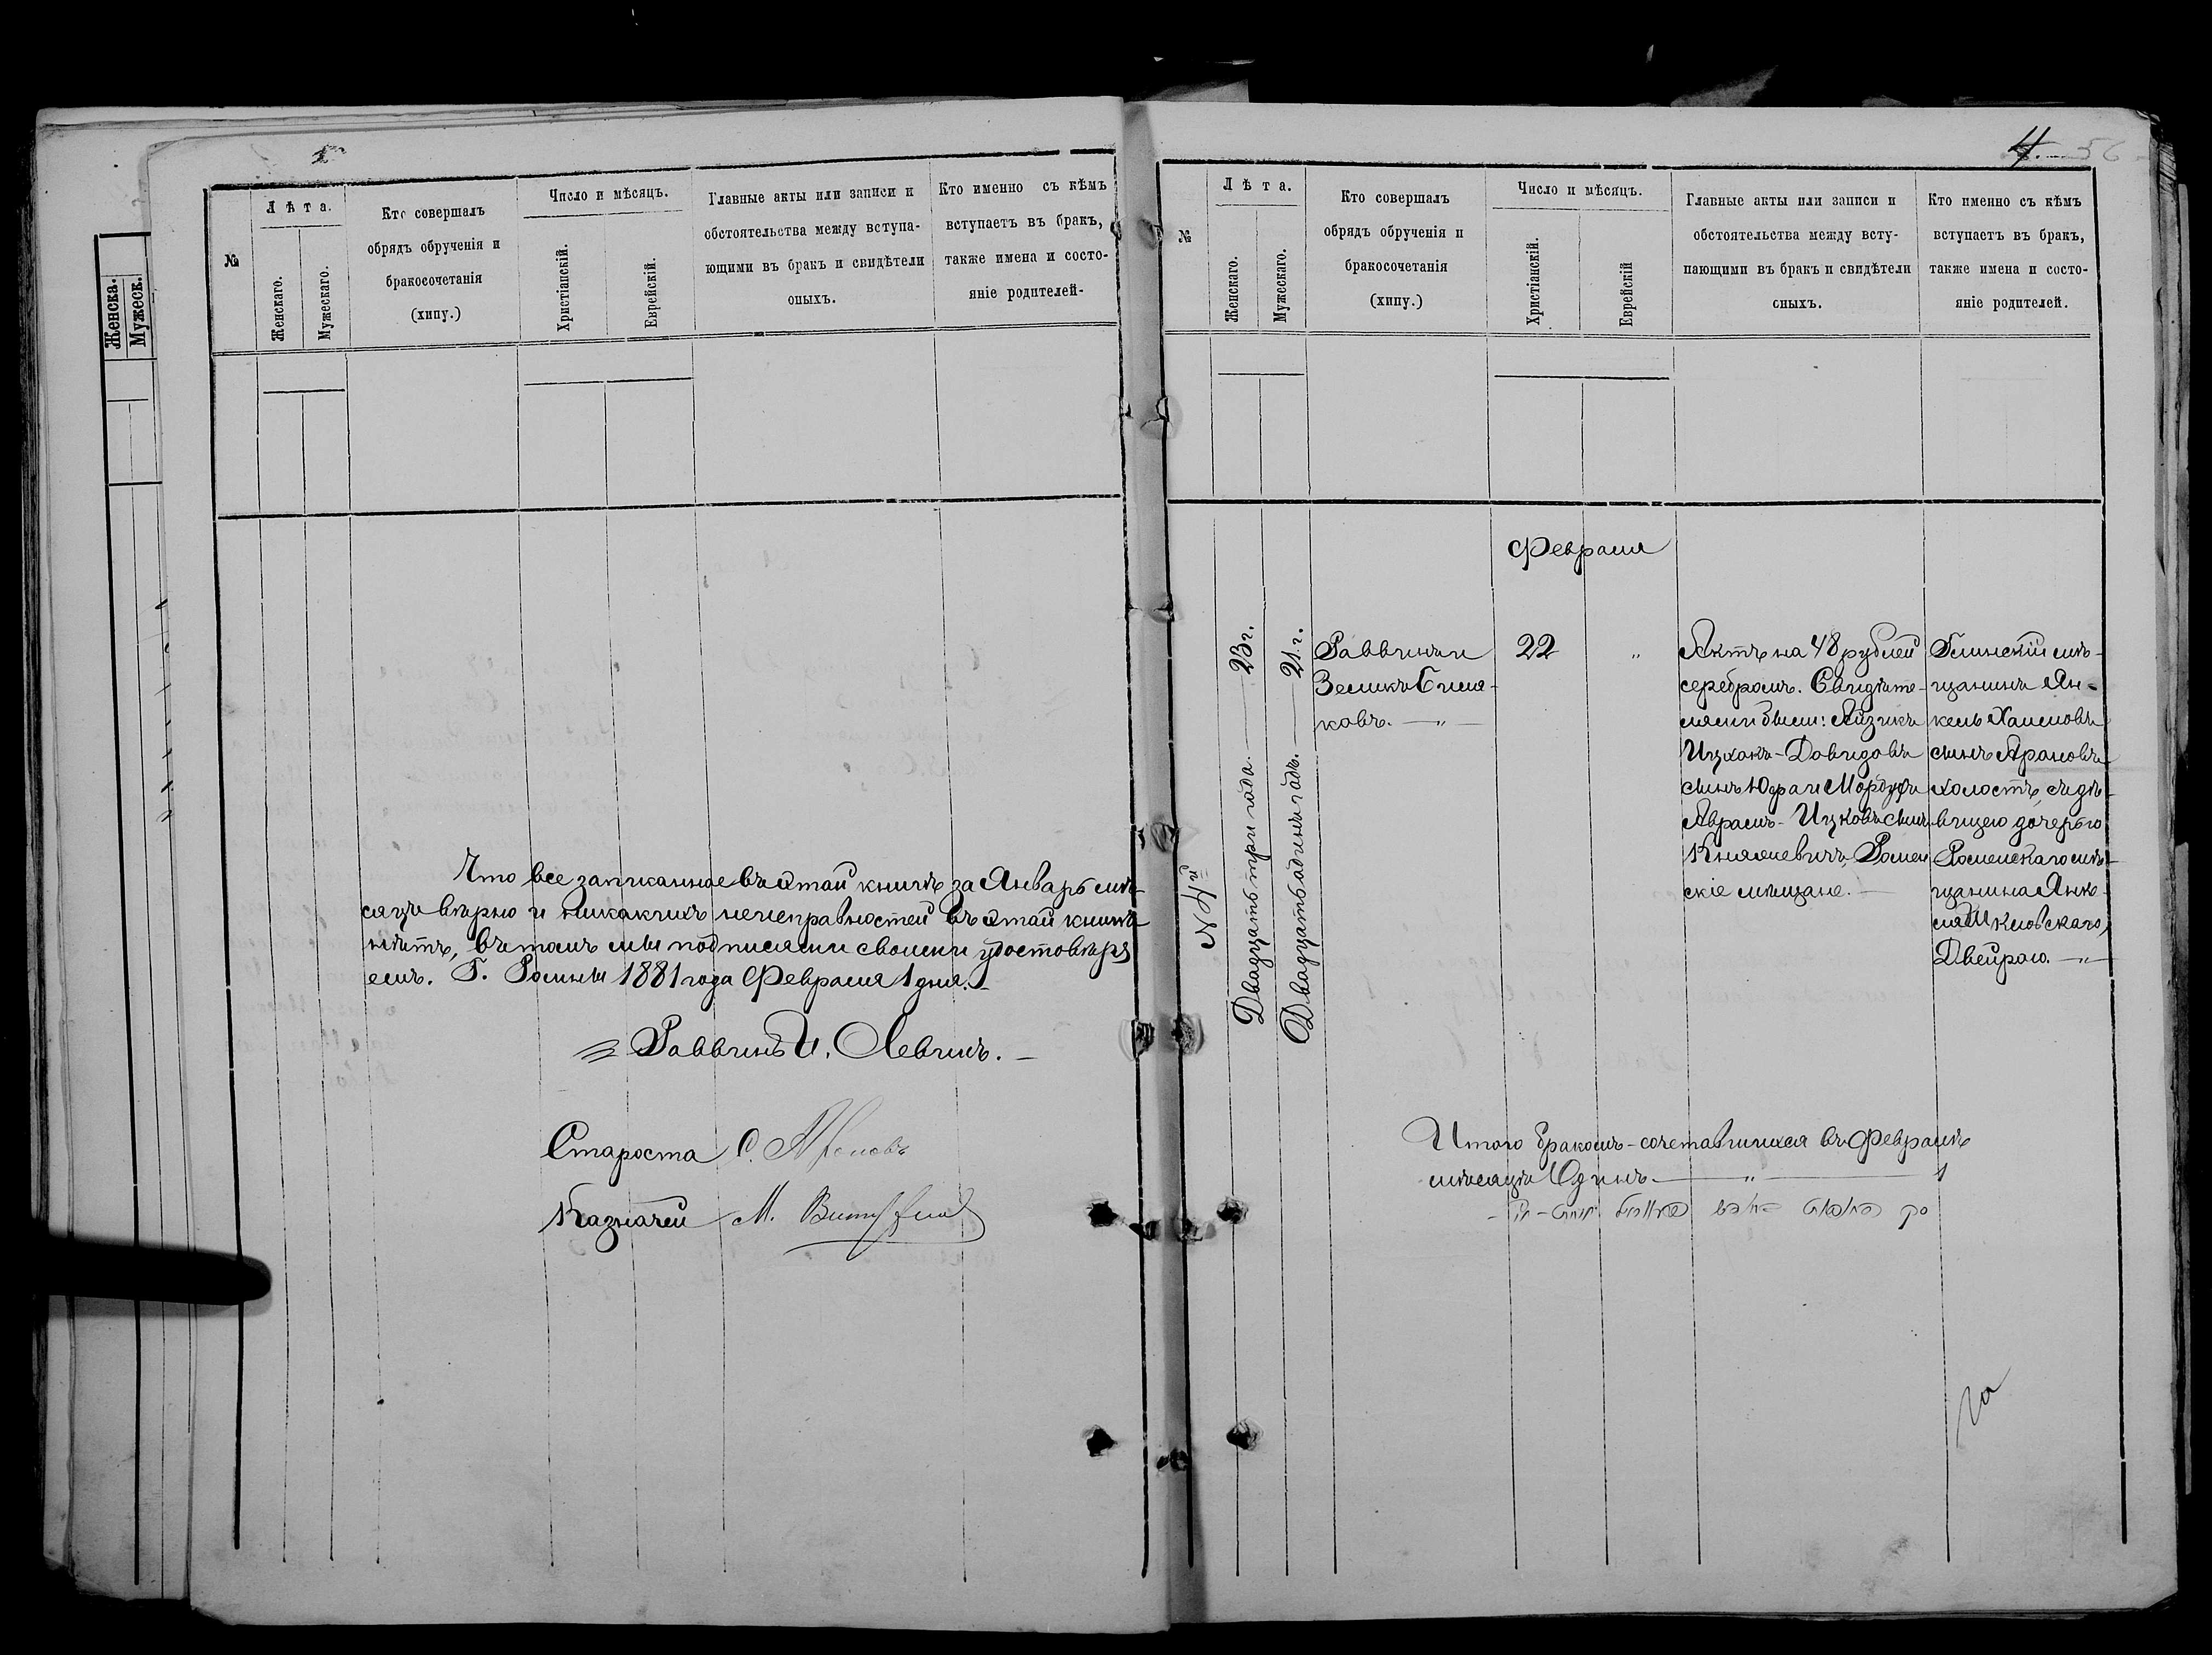 Женска.
Мужеск.
№
Лѣта.
Женскаго.
Мужескаго.
Кто совершалъ
обрядъ обрученія и
бракосочетанія
(хипу.)
Число и мѣсяцъ.
Христіанскій.
Еврейскій.
Главные акты или записи и
обстоятельства между вступа-
ющими въ бракъ и свидѣтели
оныхъ.
Кто именно съ кѣмъ
вступаетъ въ бракъ,
также имена и состо-
яніе родителей-
Что все записанное въ этой книгѣ за Январь мѣ-
сяцъ вѣрно и никакихъ неисправностей въ этой книгѣ
нѣтъ, въ томъ мы подписями своими удостовѣря
емъ. Г. Ромны 1881 года Февраля 1 дня.
Раввинъ И. Левинъ.
Староста С. Ароновъ
Казначей М.
4. 56
№
Лѣта.
Женскаго.
Мужескаго.
Кто совершалъ
обрядъ обрученія и
бракосочетанія
(хипу.)
Число и мѣсяцъ.
Христіанскій.
Еврейскій
Главные акты или записи и
обстоятельства между всту-
пающими въ бракъ и свидѣтели
оныхъ.
Кто именно съ кѣмъ
вступаетъ въ бракъ,
также имена и состо-
яніе родителей.
Февраля
N 4й
Двадцать три года. — 23 г.
Двадцать одинъ годъ. — 21. г.
Раввинъ и
Зеликъ
ковъ. — „ —
22
„
Актъ на 48 рублей
серебромъ. Свидѣте-
лями были: Айзикъ
Ицхокъ-Довидовъ
сынъ Юфа и Мордухъ
Аврамъ-Ицковъ сынъ
Княжевичъ, Ромен
скіе мѣщане. —
Глинскій мѣ-
щанинъ Ян-
кель Хаимовъ
сынъ Ароновъ
холостъ, съ дѣ-
вицею дочерью
Роменскаго мѣ-
щанина Янке-
ля Шкловскаго,
Двейрою. — „ —
Итого бракомъ-сочетавшихся въ Февралѣ
мѣсяцѣ Одинъ. — „ — 1